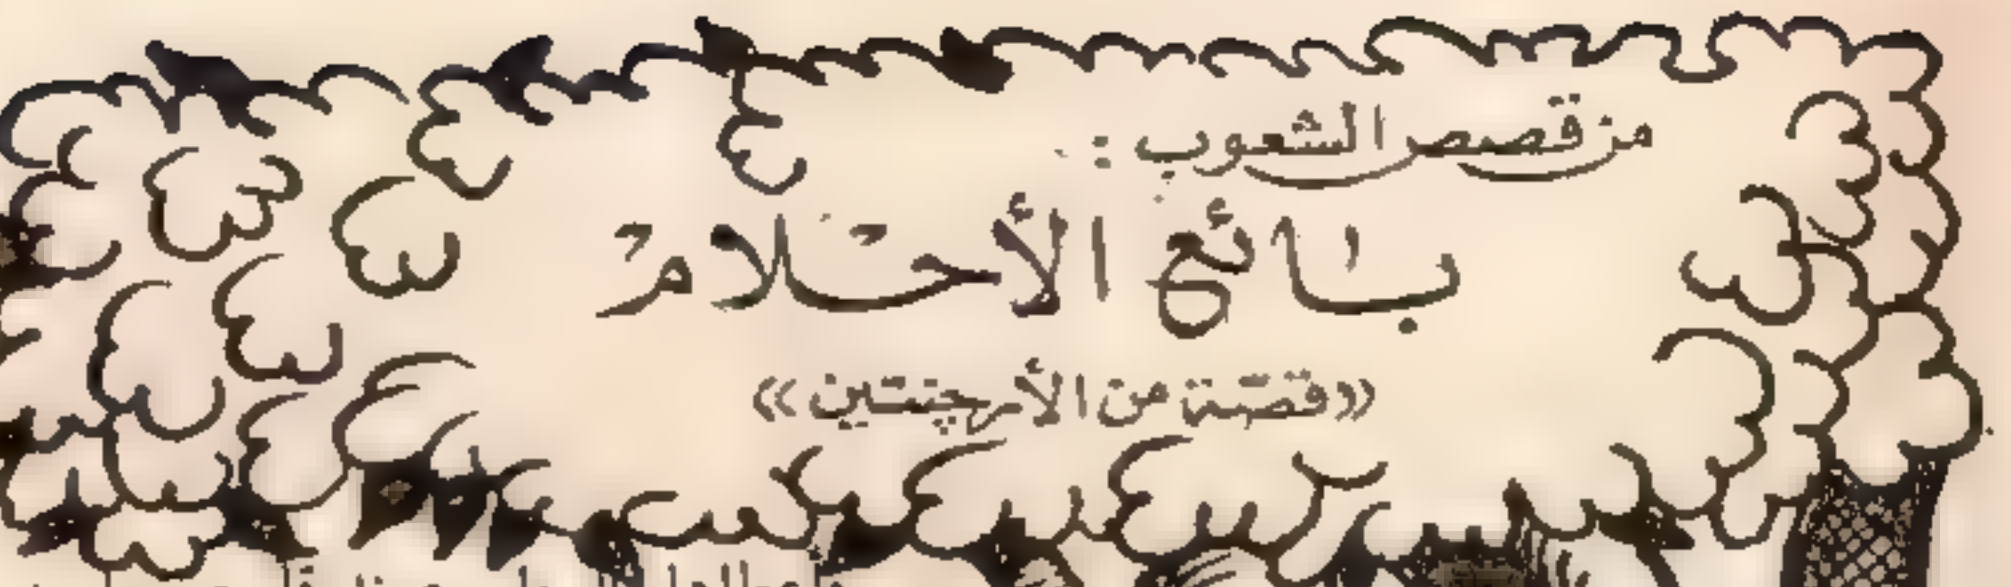 من قصص الشعوب :
بَائع الأحْلامْ
«قصّة من الأرچنتين»